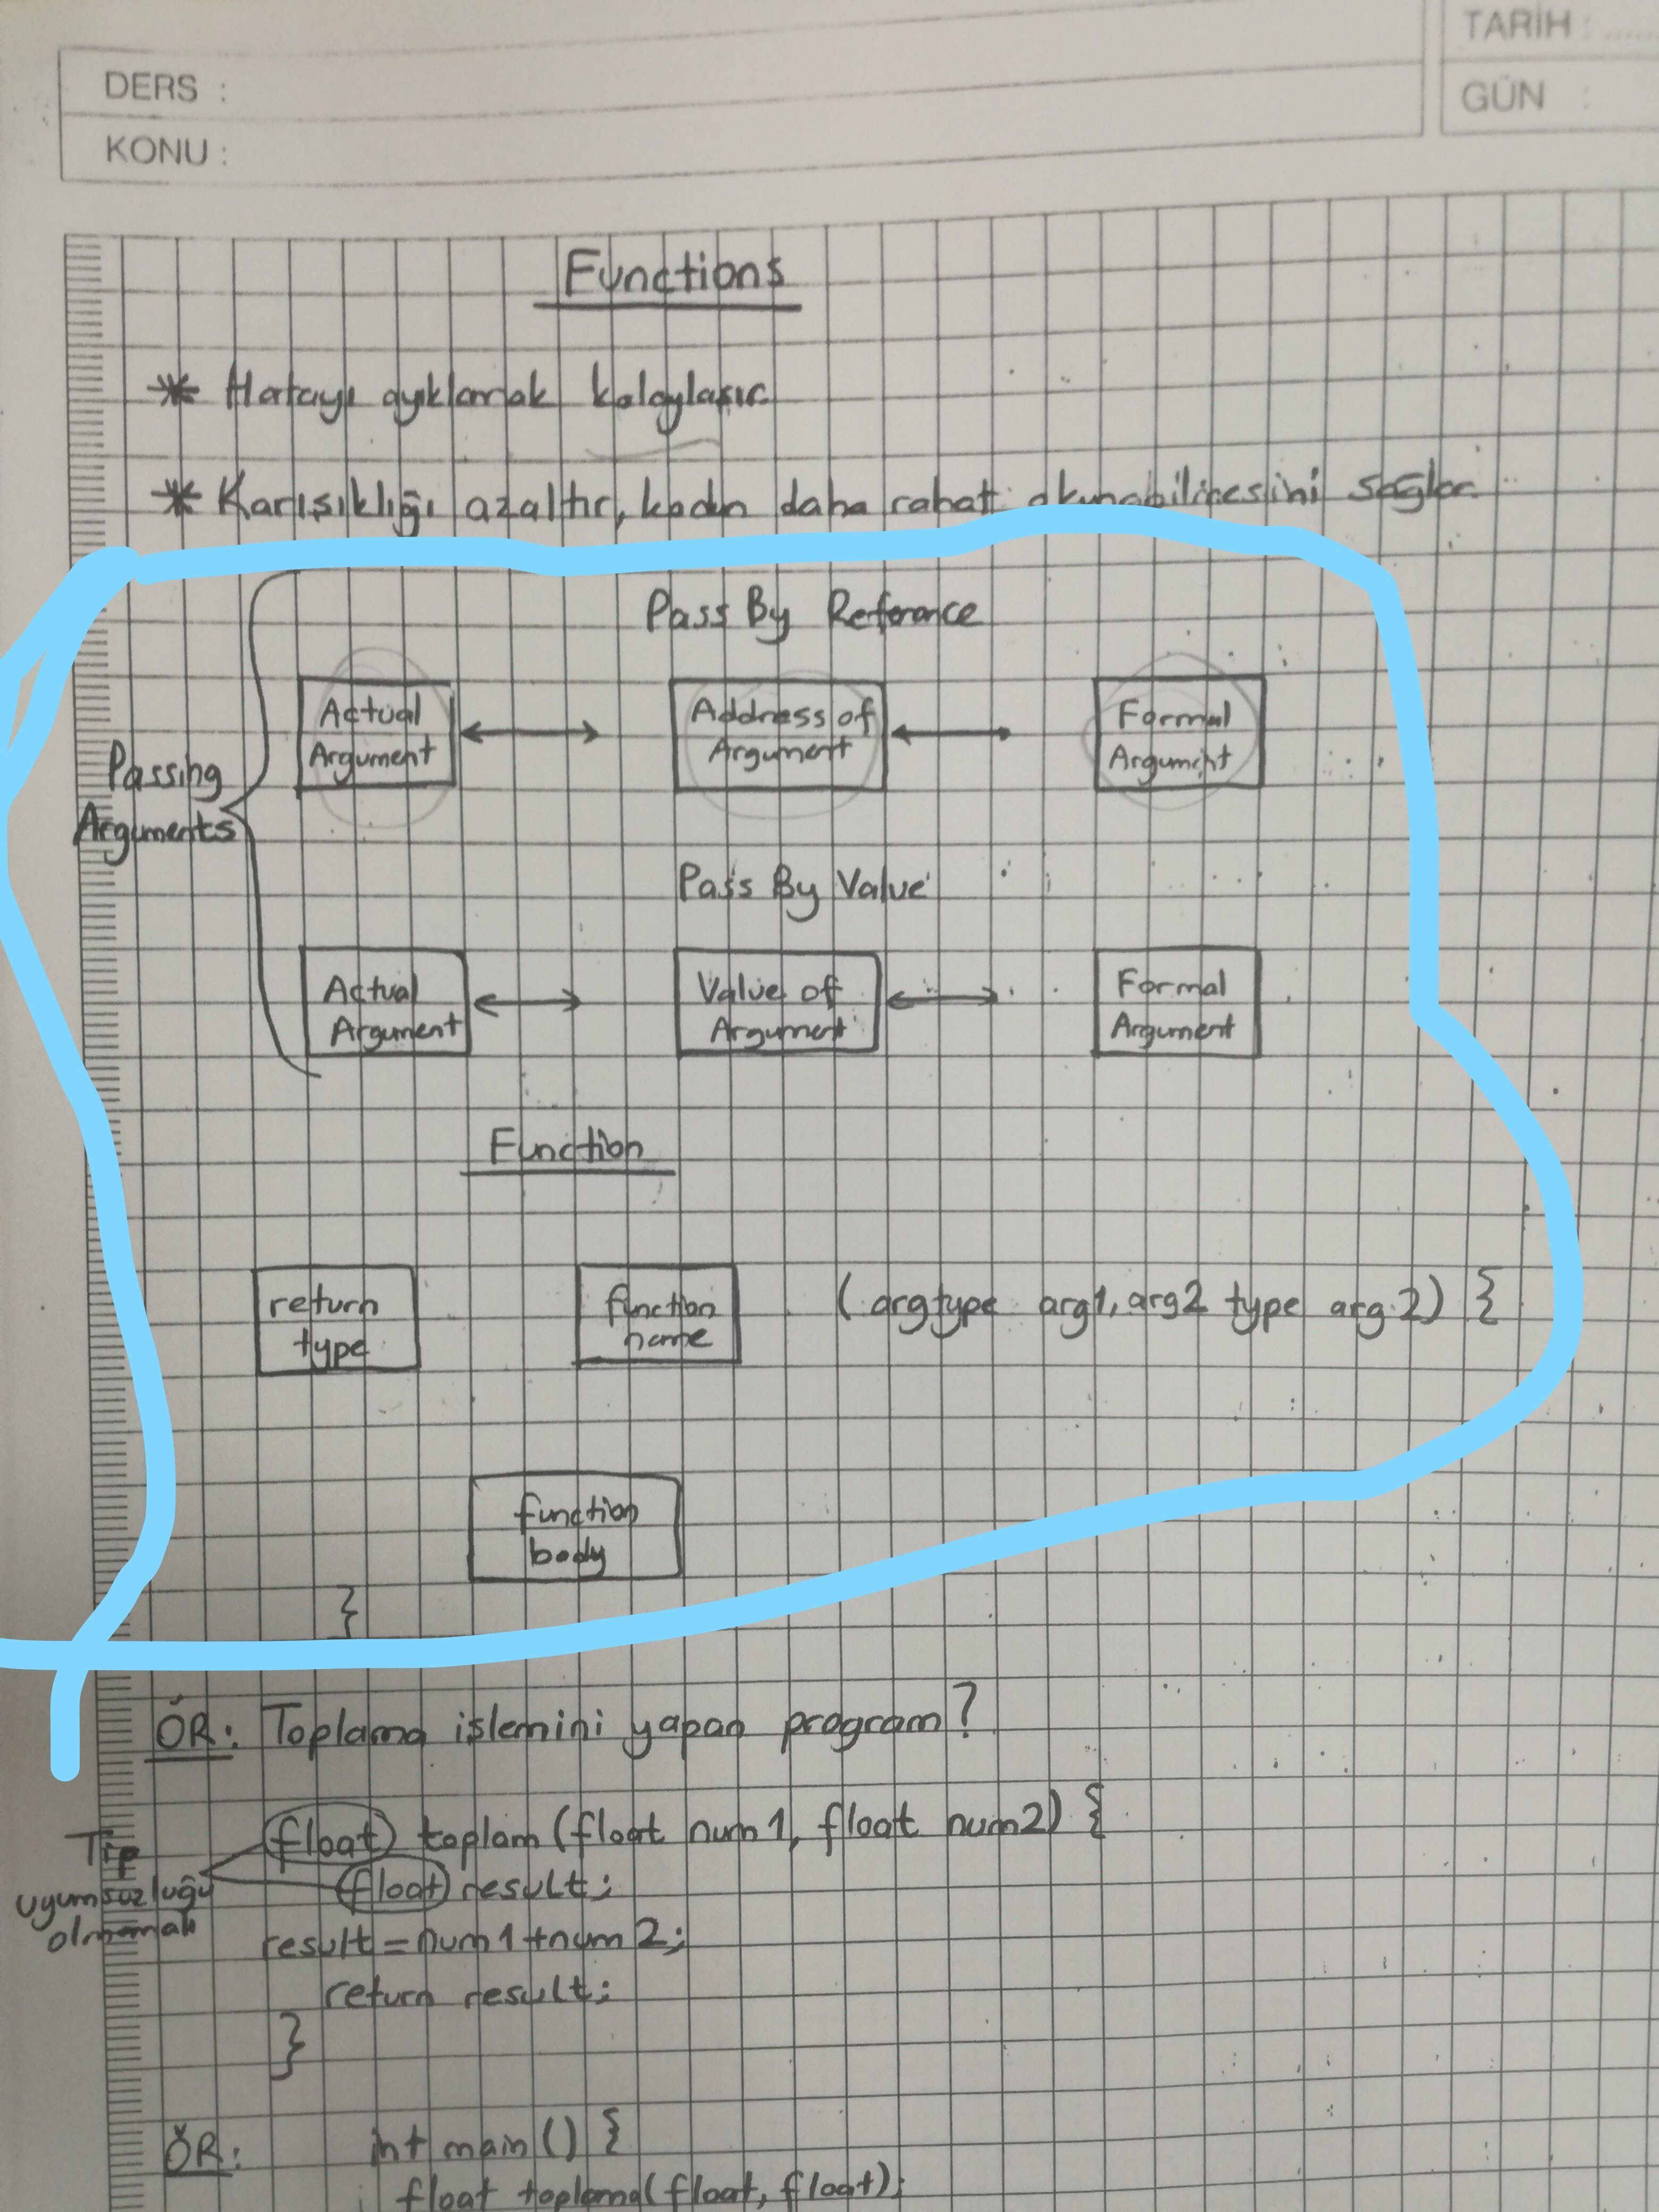 DERS :
KONU :
TARİH : ......
GÜN :
Functions
* Hatayı ayıklamak kolaylaşır.
* Karışıklığı azaltır, kodun daha rahat okunabilmesini sağlar.
Passing
Arguments
Pass By Reference
Actual
Argument
Address of
Argument
Formal
Argument
Pass By Value
Actual
Argument
Value of
Argument
Formal
Argument
Function
return
type
function
name
(argtype arg1, arg2 type arg 2) {
function
body
}
ÖR: Toplama işlemini yapan program?
Tip
uyumsuzluğu
olmamalı
float toplam (float num1, float num2) {
float result;
result = num1+num2;
return result;
}
ÖR: int main () {
float toplama(float, float);